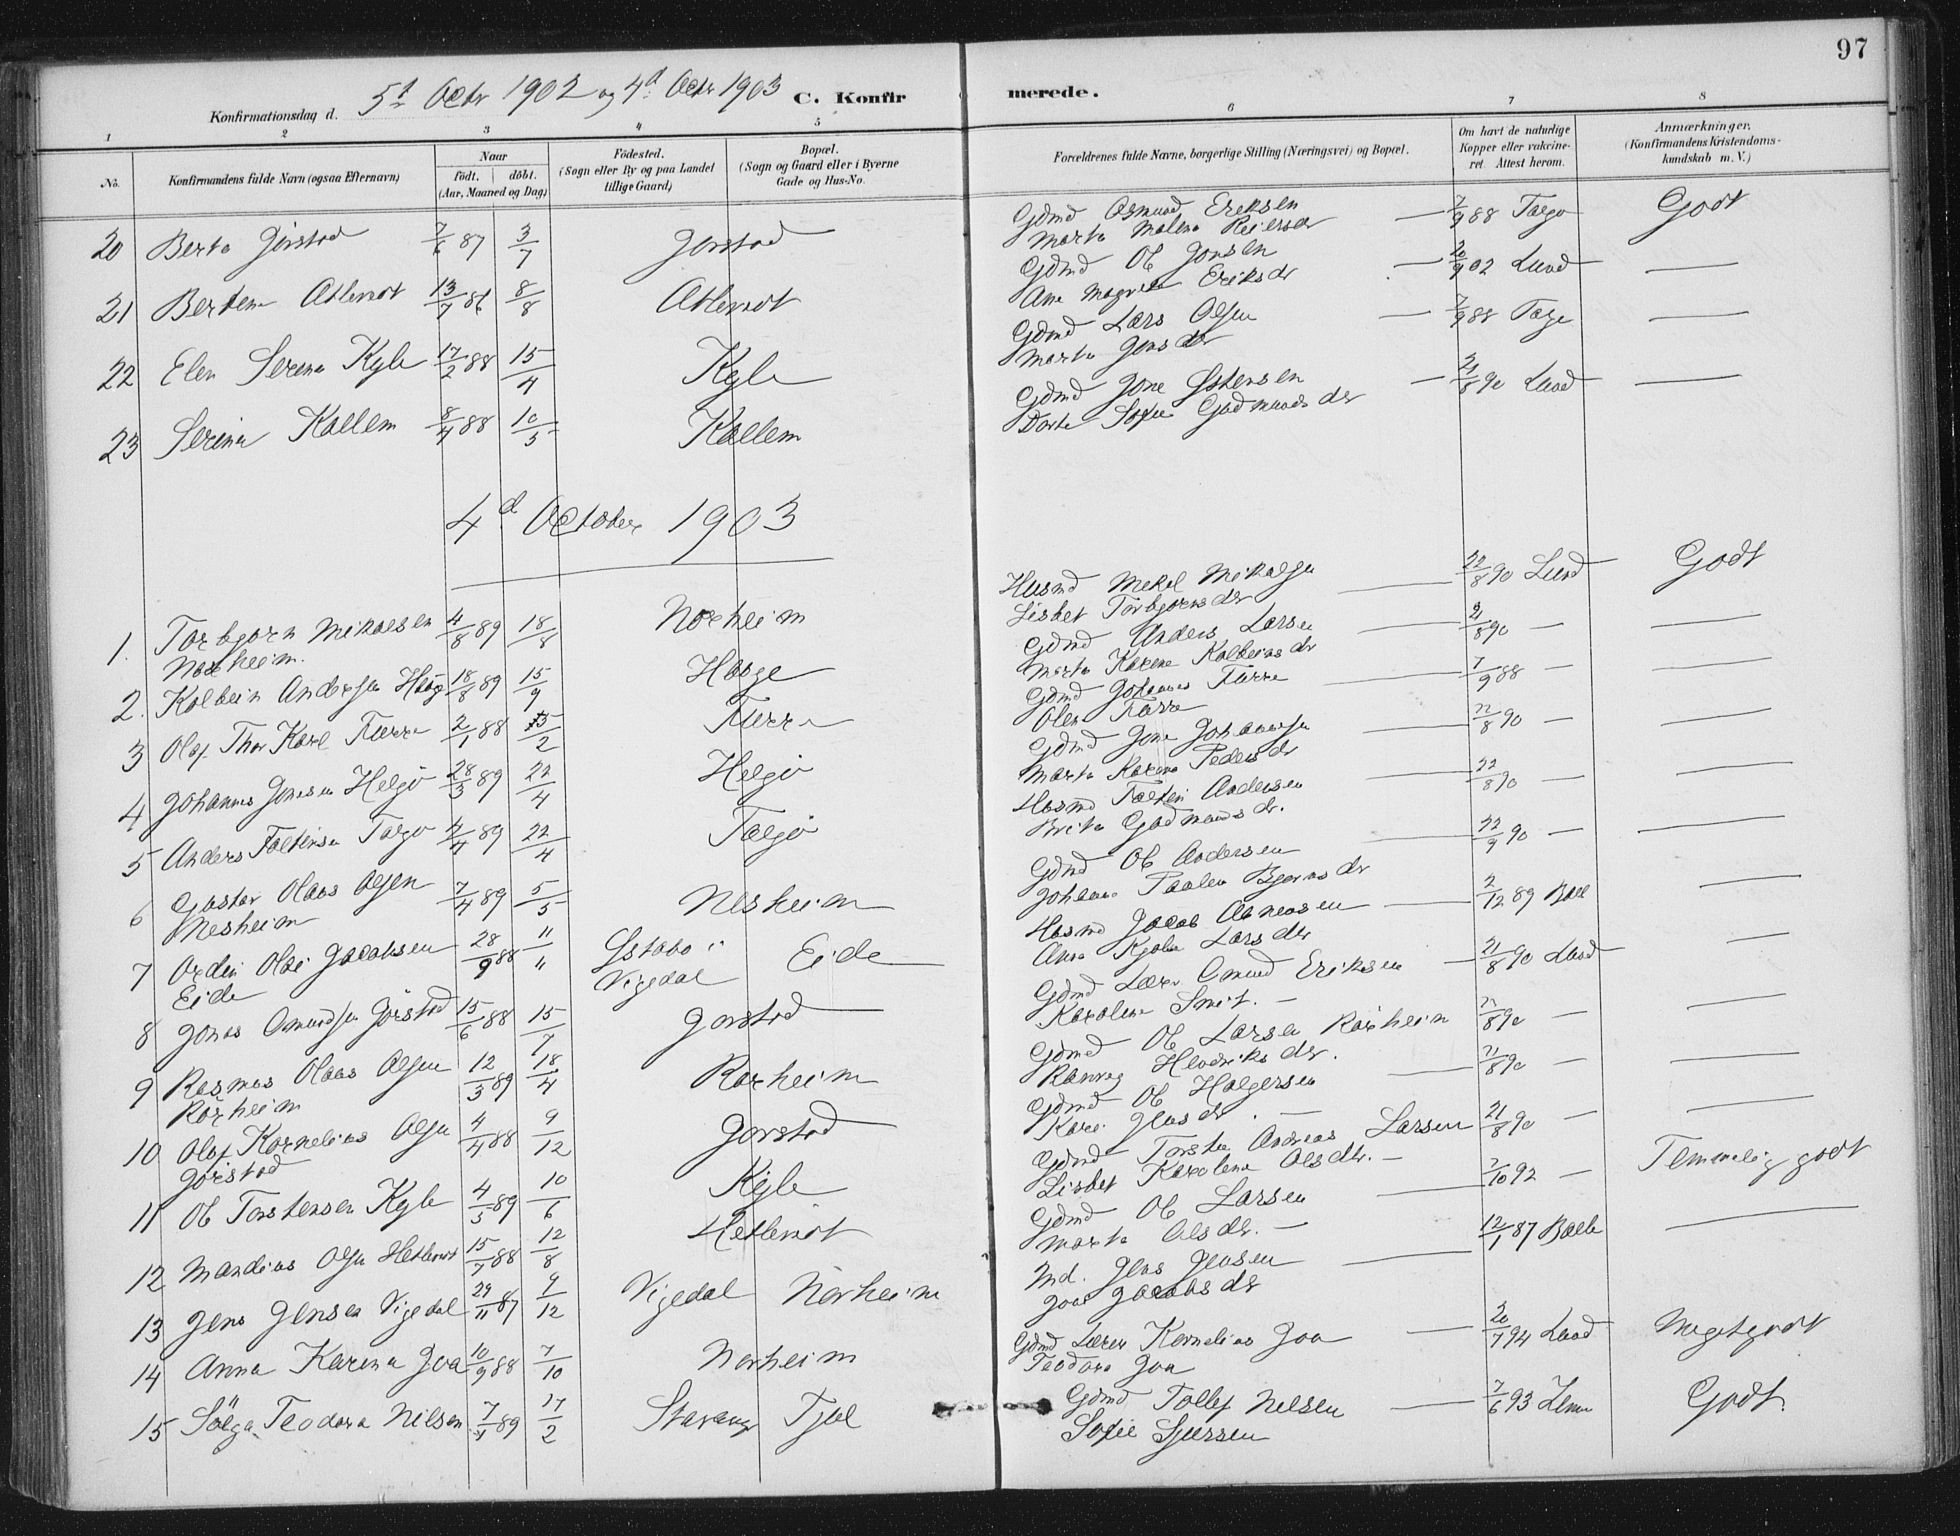 97
Konfirmationsdag d. 5t Octr 1902 og 4d Octr 1903 C. Konfirmerede.
1 2 3 4 5 6 7 8
No. Konfirmandens fulde Navn (ogsaa Efternavn) Naar födt. döbt. (Aar, Maaned og Dag) Födested. (Sogn eller By og paa Landet tillige Gaard) Bopæl. (Sogn og Gaard eller i Byerne Gade og Hus-No. Forældrenes fulde Navne, borgerlige Stilling (Næringsvei) og Bopæl. Om havt de naturlige Kopper eller vakcineret. Attest herom. Anmærkninger. (Konfirmandens Kristendomskundskab m. V.)
20 Berta Gjörstad 7/6 87 3/7 Gjorstad Gdmd Osmund Eriksen — 7/9 88 Talgo Godt
Marta Malene
21 Bertine 13/7 86 8/8 Gdmd Ol Jonsen — 20/9 02 Lund —
Ane Eriksdr
22 Elen Serine Kyle 17/2 88 15/4 Kyle Gdmd Lars Olsen — 7/9 88 —
Marta Jonsdr
23 Serine Kallem 8/4 88 10/5 Kallem Gdmd Jone Östensen — 21/8 90 Lund —
Dorte Sofie Gudmundsdr
4d October 1903
1. Torbjorn Mikalsen Norheim. 4/8 89 18/8 Norheim Husmd Mekal Mikalsen — 22/8 90 Lund Godt
Lisbet Torbjornsdr
2. Kolbein Andersen Hauge 18/8 89 15/9 Hauge Gdmd Anders Larsen — 21/8 90 — —
Marta Karine Kolbeinsdr
3 Olaf Thor Karl Furre 2/1 88 15/2 Furre Gdmd Johannes Furre 7/9 88 — —
Olen Furre
4 Johannes Jonesen Helgö 28/3 89 22/4 Helgö Gdmd Jone Johannesen — 22/8 90 — —
Marta Karine Pedersdr
5 Anders Talgo 4/4 89 22/4 Talgö Husmd Andersen — 22/8 90 — —
Brita Gudmundsdr.
6 Gustav Olaus Olsen Nesheim 7/4 89 5/5 Nesheim Gdmd Ol Andersen — 22/9 90 — —
Johanne Paulen Bjornsdr
7 Ordin Olai Jacobsen Eide 28/9 88 11/11 Ystabo i Vigedal Eide Husmd Jacob — 2/12 89 —
Ana Larsdr
8 Jonas Osmundsen Gjörstad 15/6 88 15/7 Gjorstad Gdmd Lærer Osmund Eriksen — 21/8 90 Lund —
Karoline Smit. —
9 Rasmus Olaus Olsen Rörheim 12/3 89 18/4 Rorheim Gdmd Ol Larsen Rörheim 21/8 90 — —
Ranveg Hendriksdr.
10 Olaf Kornelius Olsen Gjörstad 4/4 88 9/12 Gjorstad Gdmd Ol Holgersen — 21/8 90 — —
Kari Jensdr. —
11 Ol Torstensen Kyle 4/5 89 10/6 Kyle Gdmd Torsten Andreas Larsen 21/8 90 — —
Lisbet Karolene Olsdtr. —
12 Mandius Olsen 15/7 88 12/8 Gdmd Ol Larsen — 7/10 92 — Temmelig godt
Marta Olsdtr. —
13 Jens Jensen Vigedal 29/11 87 9/12 Vigedal Norheim Md. Jens Jensen — 12/1 87 —
Jacobsdr
14 Anna Karina Goa 10/9 88 7/10 Norheim Gdmd Lærer Kornelius Goa — 20/7 94 Lund Megetgodt
Teodora Goa
15 Sölga Teodora Nilsen 7/1 89 17/2 Stavang Tjul Gdmd Tollef Nelsen — 7/6 93 Godt.
Sofie Sjursen